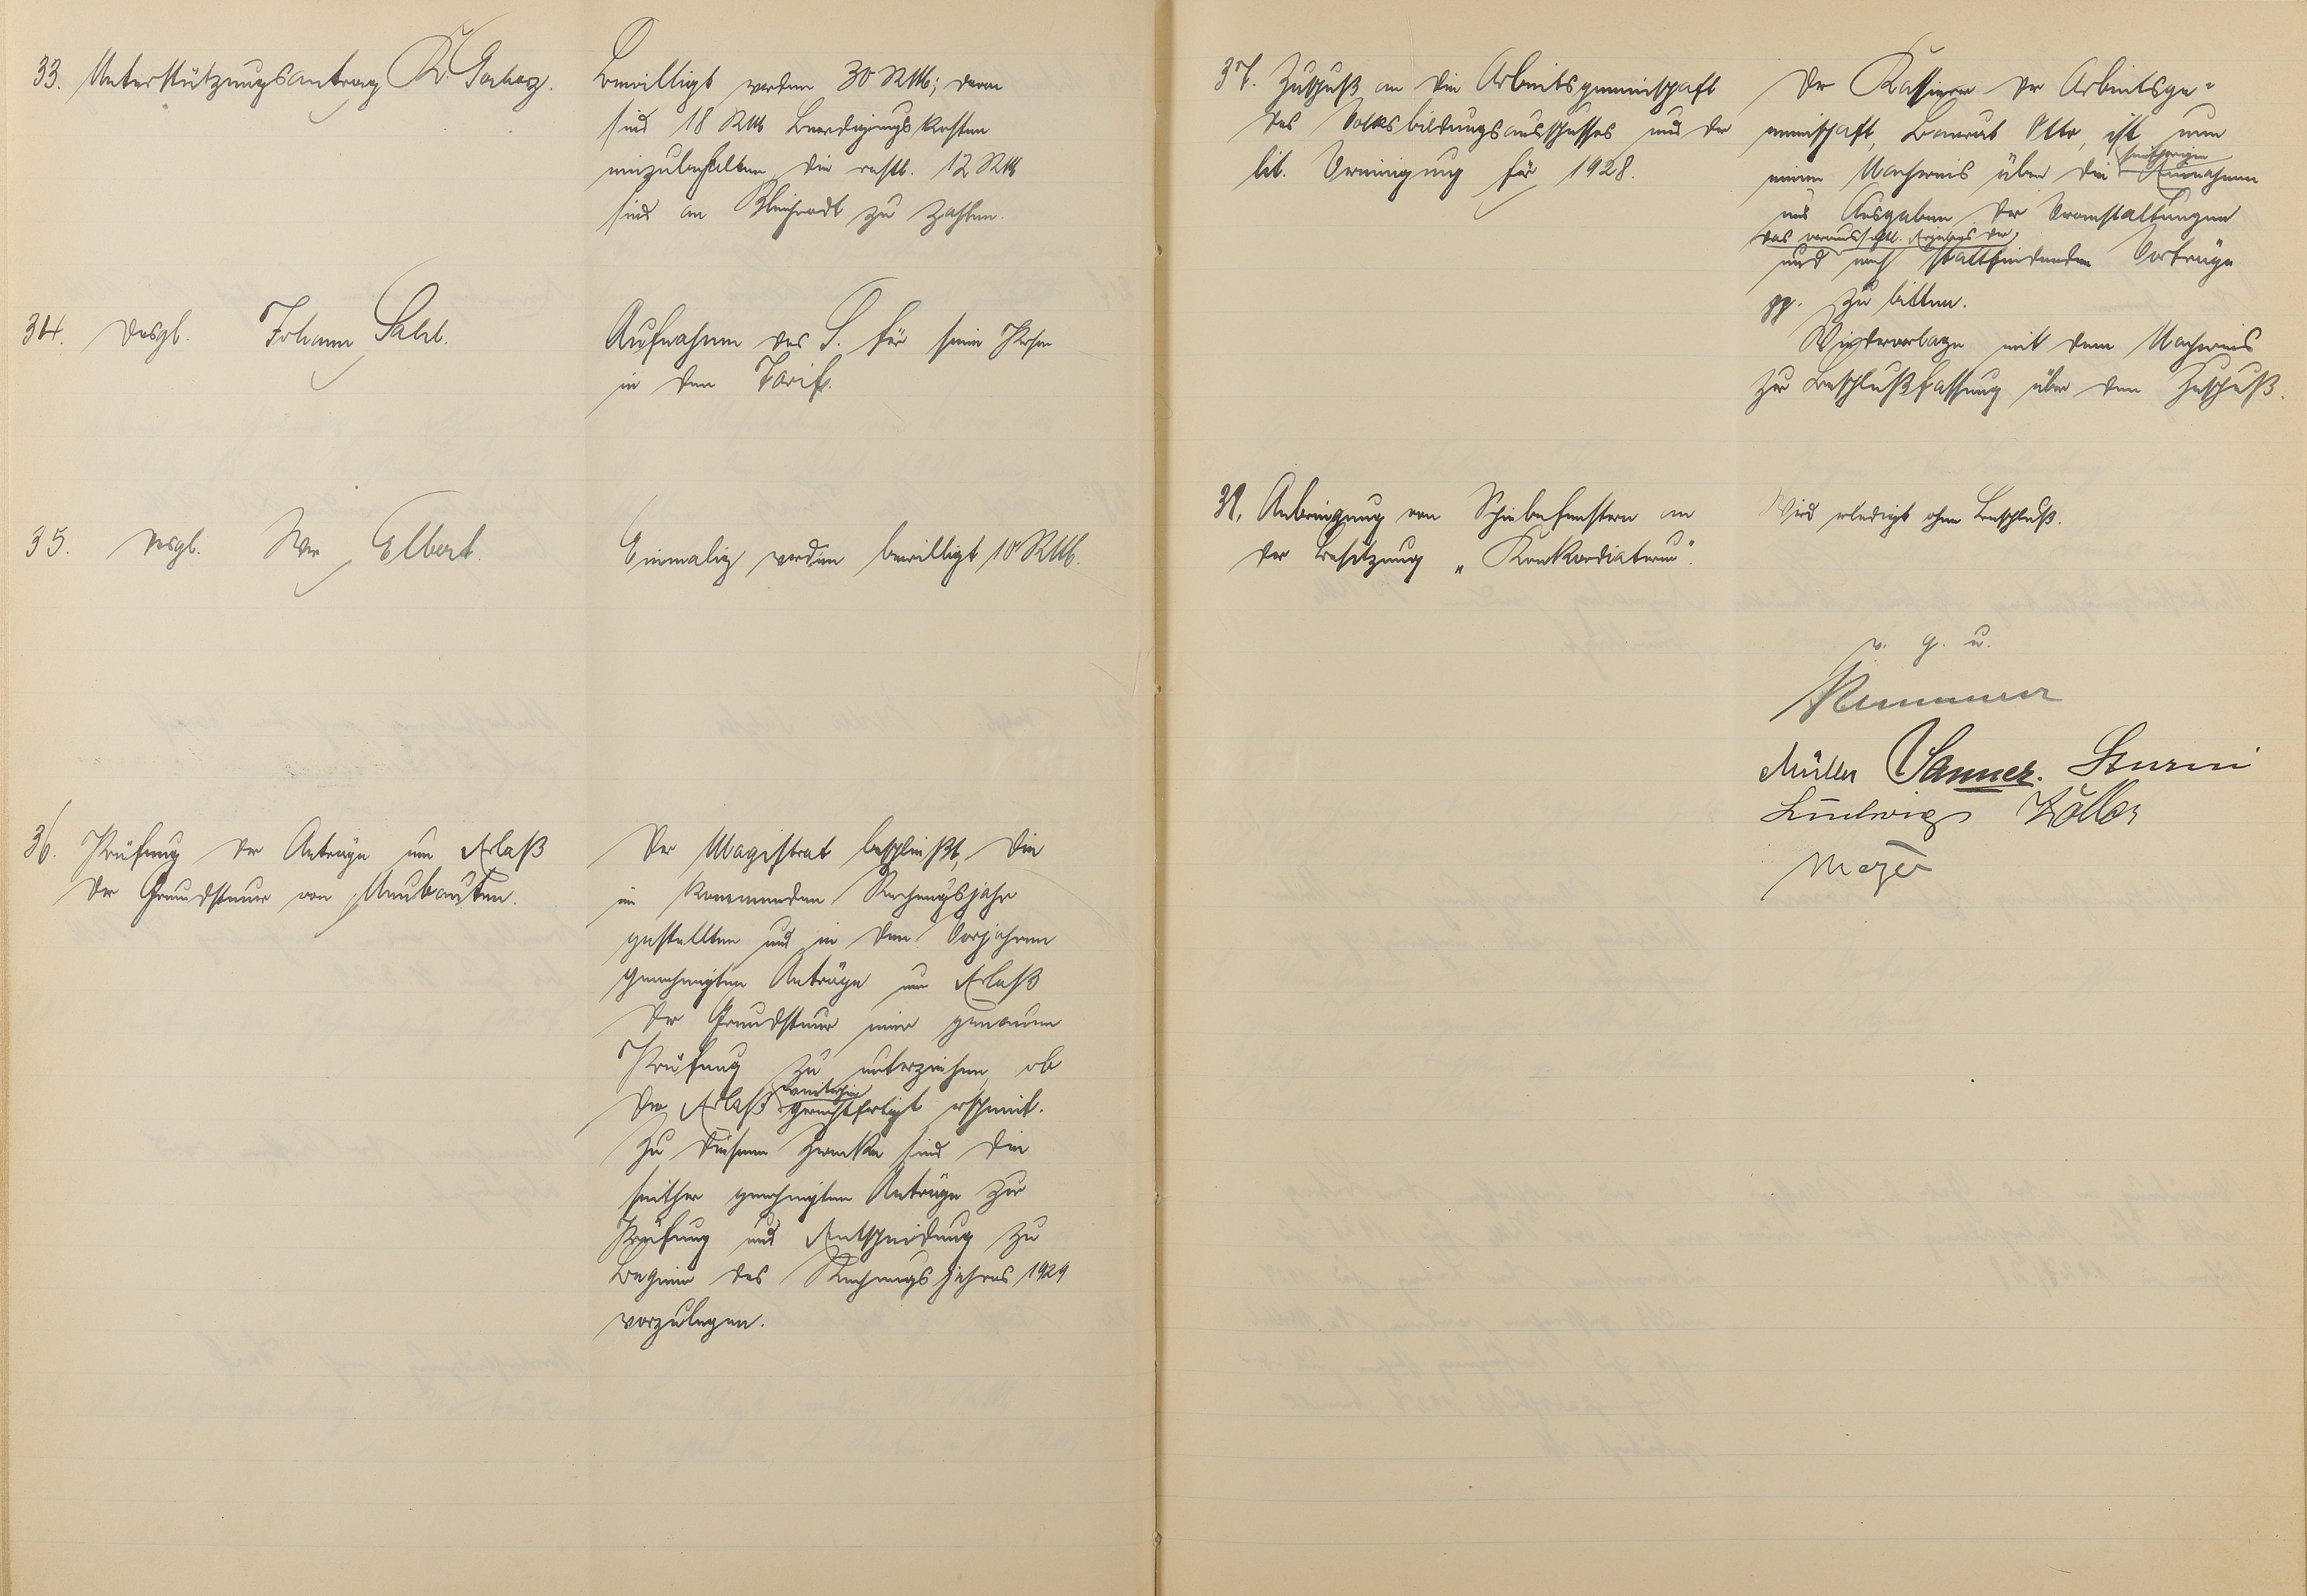 33. Unterstützungsantrag K. Gachoz.
Bewilligt werden 30 RM; davon
sind 18 RM Beerdigungskosten
einzubehalten, die restl. 12 RM
sind an zu zahlen.
34. Desgl. Johann Sahl.
Aufnahme des S. für seine Person
in den Tarif.
35. Desgl. Wwe Elbert.
Einmalig werden bewilligt 10 RM.
36. Prüfung der Anträge um Erlaß
der Grundsteuer von Neubauten.
Der Magistrat beschließt, die
im kommenden Rechnungsjahr
gestellten und in den Vorjahren
genehmigten Anträge um Erlaß
der Grundsteuer einer genauen
Prüfung zu unterziehen, ob
der Erlaß weiterhin gerechtfertigt erscheint.
Zu diesem Zwecke sind die
seither genehmigten Anträge zur
Prüfung und Entscheidung zu
Beginn des Rechnungsjahres 1929
vorzulegen.
37. Zuschuß an die Arbeitsgemeinschaft
des Volksbildungsausschusses und der
lit. Vereinigung für 1928.
Der Kassierer der Arbeitsge-
meinschaft, Baurat Otto, ist um
einen Nachweis über die seitherigen Einnahmen
und Ausgaben der Veranstaltungen
und das voraussichtl. Ergebnis der noch stattfindenden Vorträge
pp. zu bitten.
Wiedervorlage mit dem Nachweis
zur Beschlußfassung über den Zuschuß.
38. Anbringung von Schiebefenstern an
der Besitzung „Konkordiaturm“.
Wird erledigt ohne Beschluß.
v. g. u.
Müller Sanner. Sturm
Ludwig Zöller
Meyer